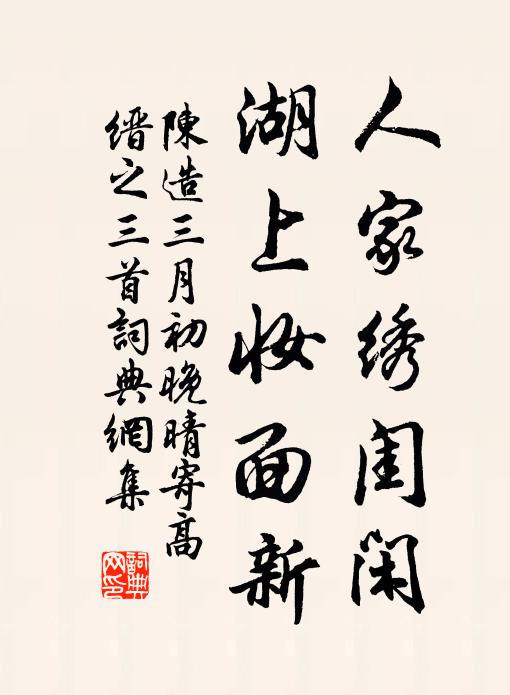 人家绣闺闲
湖上妝面新
陳造三月初晚晴寄高
縉之三首詞典網集
詞典
网印